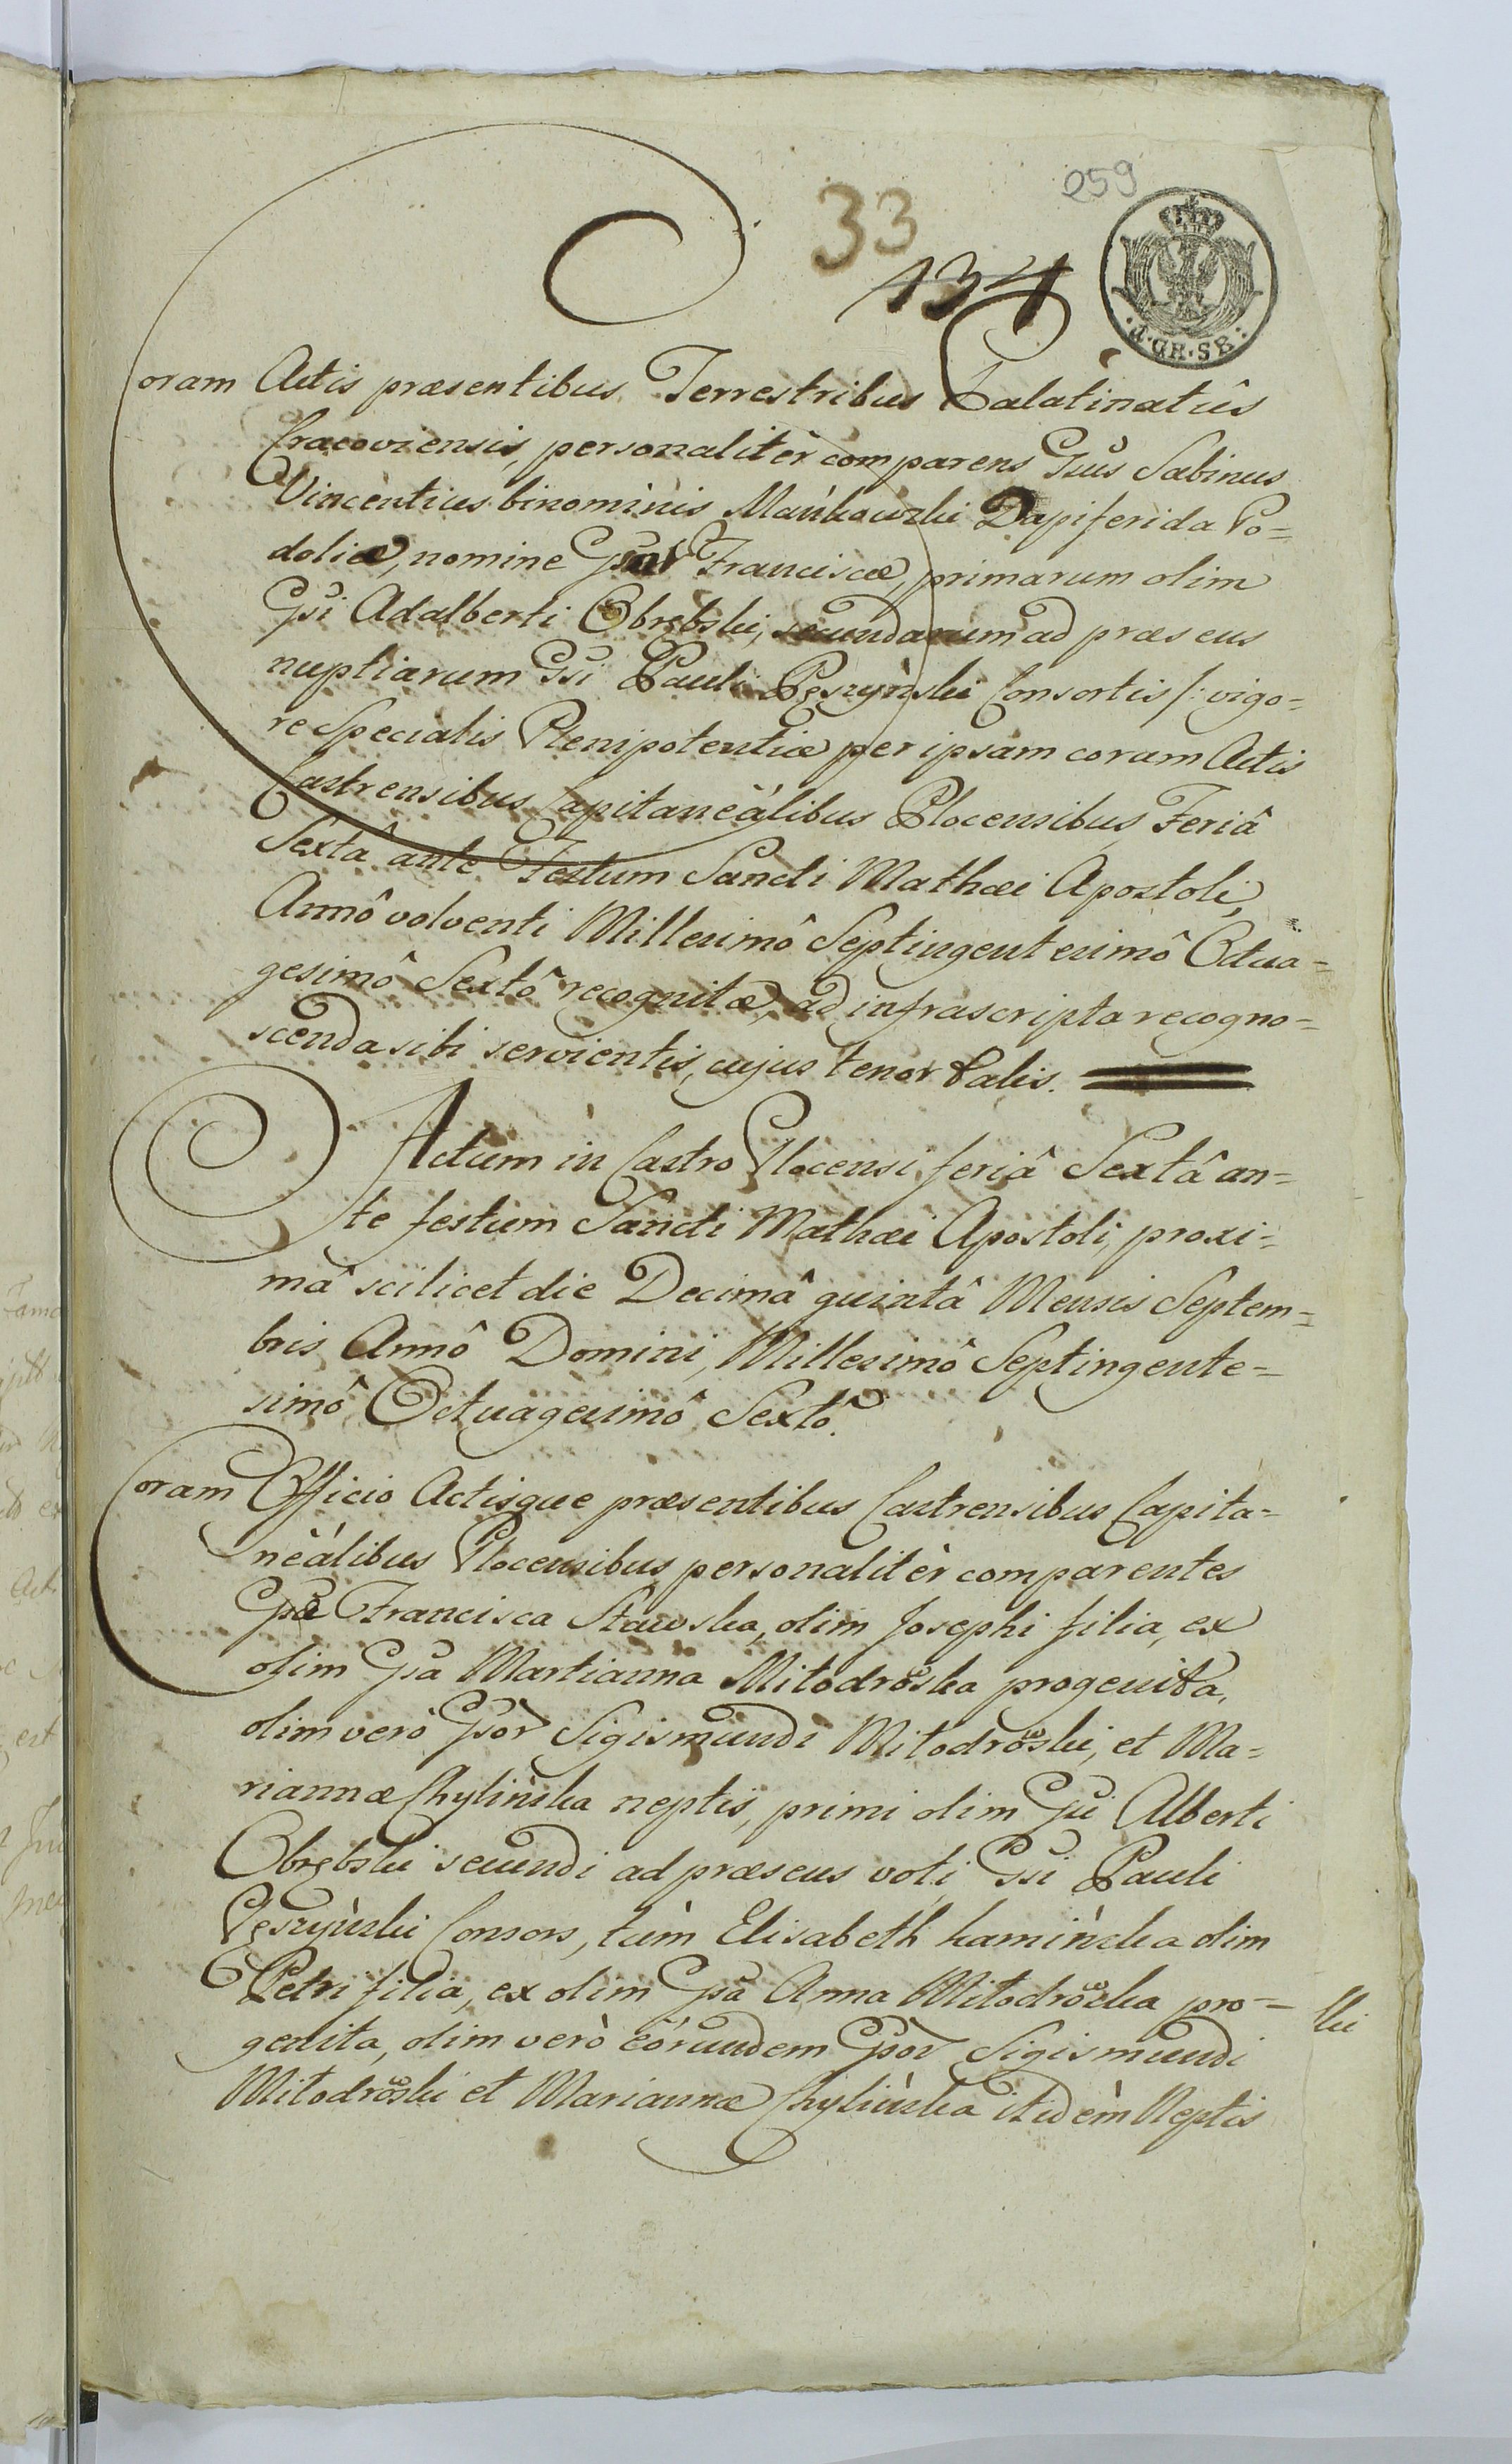 259
33
134
4.GR.SR.
Coram Actis præsentibus Terrestribus Palatinatûs
Cracoviensis, personalitèr comparens Gsus Sabinus
Vincentius binominis Mańkowski Dapiferida Po=
doliæ, nomine Gsæ Franciscæ, primarum olim
Gsi Adalberti Obrębski, secundarum ad præsens
nuptiarum Gsi Pauli Pęszyński Consortis /: vigo=
re Specialis Plenipotentiæ per ipsam coram Actis
Castrensibus Capitaneálibus Plocensibus, Feriâ
Sextâ ante Festum Sancti Mathæi Apostoli,
Annô volventi Millesimô Septingentesimô Octua=
gesimô Sextô recognitæ, ad infrascripta recogno=
scenda sibi servientis, cujus tenor talis.
Actum in Castro Plocensi feriâ Sextâ an=
te festum Sancti Mathæi Apostoli, proxi=
mâ scilicet die Decimâ quintâ Mensis Septem=
bris Annô Domini, Millesimô Septingente=
simô Octuagesimô Sextô.
Coram Officio Actisque præsentibus Castrensibus Capita=
neálibus Plocensibus personalitèr comparentes
Gsa Francisca Stawska, olim Josephi filia, ex
olim Gsa Martianna Mitodroska progenita,
olim verò Gsor Sigismundi Mitodroski, et Ma=
riannæ Chylińska neptis, primi olim Gsi Alberti
Obrębski secundi ad præsens voti Gsi Pauli
Pęszyński Consors, tùm Elisabeth Kamińska olim
Petri filia, ex olim Gsa Anna Mitodroska pro=
genita, olim verò eórundem Gsor Sigismundi
Mitodroski et Mariannæ Chylińska itidèm Neptis
ski